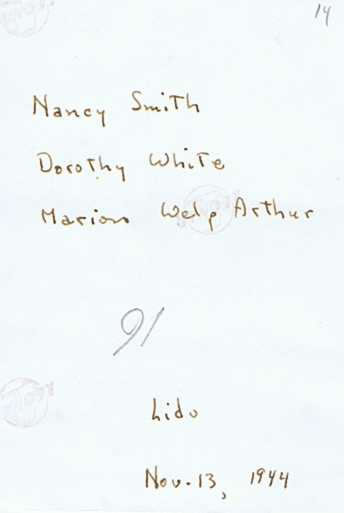 14
Nancy Smith
Dorothy White
Marion Welp Arthur
91
Lido
Nov. 13, 1944